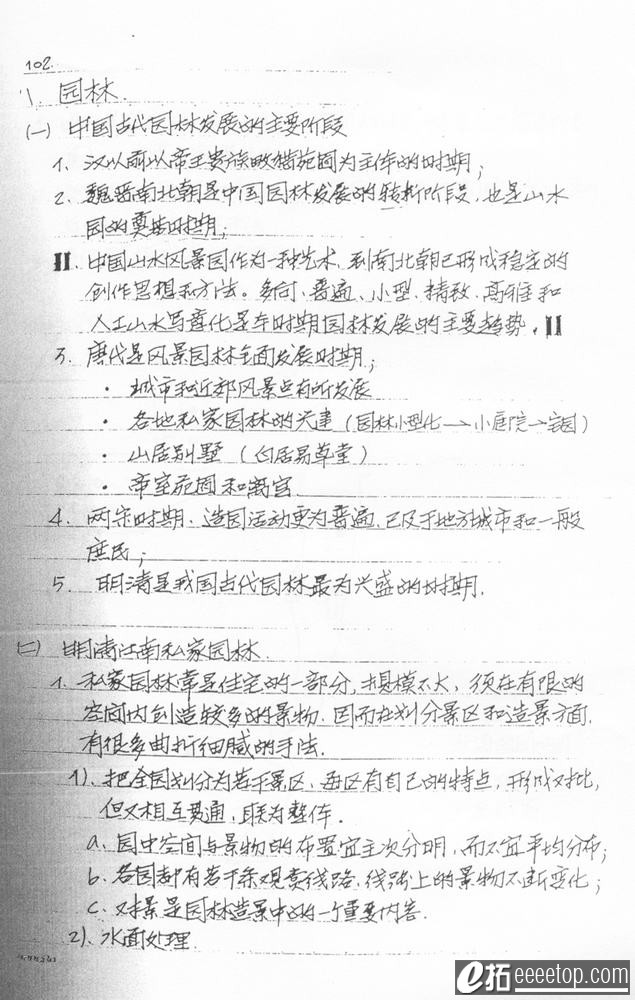 102.
八、园林.
(一) 中国古代园林发展的主要阶段
1. 汉以前以帝王贵族畋猎苑囿为主体的时期；
2. 魏晋南北朝是中国园林发展的转折阶段，也是山水
园的奠基时期；
中国山水风景园作为一种艺术，到南北朝已形成稳定的
创作思想和方法。多向、普遍、小型、精致、高雅和
人工山水写意化是本时期园林发展的主要趋势。
3. 唐代是风景园林全面发展时期；
· 城市和近郊风景点有所发展
· 各地私家园林的兴建（园林小型化→小庭院→宅园）
· 山居别墅（白居易草堂）
· 帝室苑囿和离宫
4. 两宋时期，造园活动更为普遍，已及于地方城市和一般
庶民；
5. 明清是我国古代园林最为兴盛的时期.
(二) 明清江南私家园林.
1. 私家园林常是住宅的一部分，规模不大，须在有限的
空间内创造较多的景物，因而在划分景区和造景方面，
有很多曲折细腻的手法.
1). 把全园划分为若干景区，每区有自己的特点，形成对比，
但又相互贯通，联为整体.
a. 园中空间与景物的布置宜主次分明，而不宜平均分布；
b. 各园都有若干条观赏线路，线路上的景物不断变化；
c. 对景是园林造景中的一个重要内容.
2). 水面处理
e拓eeeetop.com